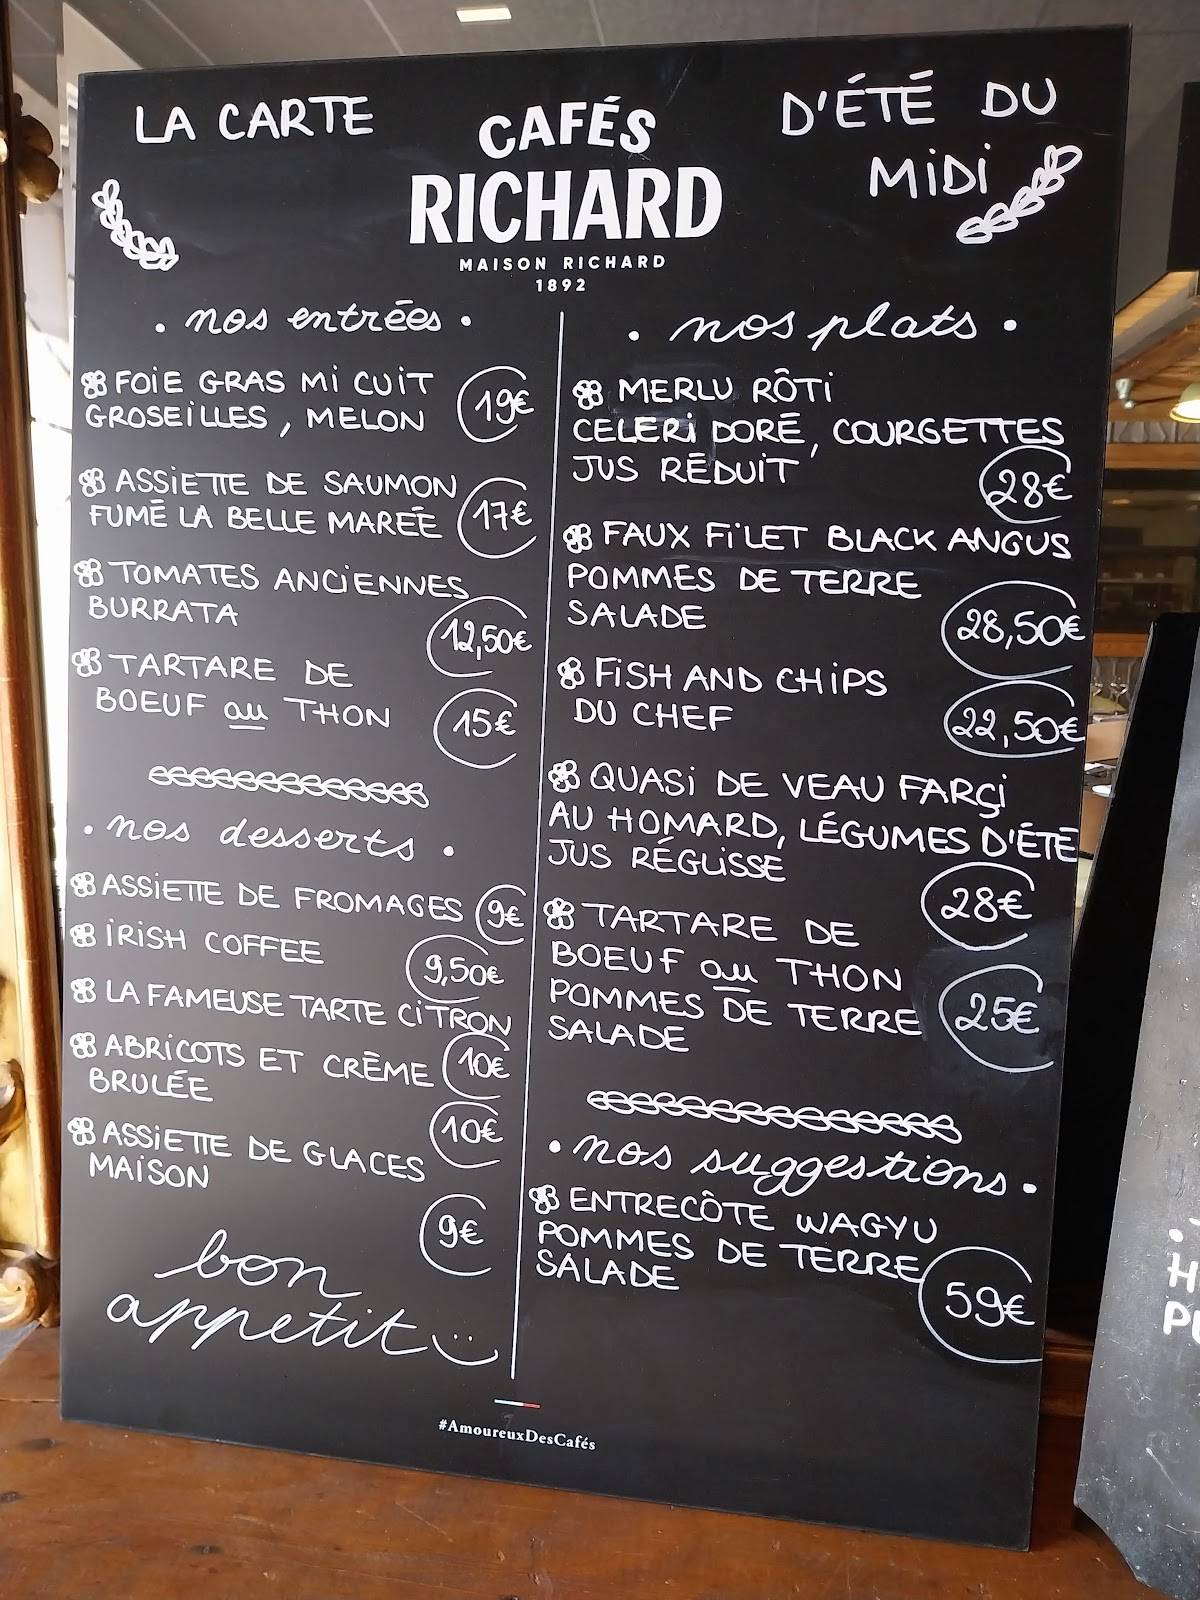 LA CARTE
D'ÉTÉ DU
MIDI
CAFÉS
RICHARD
MAISON RICHARD
1892
• nos entrées •
FOIE GRAS MI CUIT
GROSEILLES, MELON 19€
ASSIETTE DE SAUMON
FUMÉ LA BELLE MARÉE 17€
TOMATES ANCIENNES
BURRATA 12,50€
TARTARE DE
BOEUF au THON 15€
• nos desserts •
ASSIETTE DE FROMAGES 9€
IRISH COFFEE 9,50€
LA FAMEUSE TARTE CITRON
10€
ABRICOTS ET CRÈME
BRULÉE
10€
ASSIETTE DE GLACES
MAISON
9€
bon
appetit
• nos plats •
MERLU RÔTI
CELERI DORÉ, COURGETTES
JUS RÉDUIT
28€
FAUX FILET BLACK ANGUS
POMMES DE TERRE
SALADE 28,50€
FISH AND CHIPS
DU CHEF 22,50€
QUASI DE VEAU FARÇI
AU HOMARD, LÉGUMES D'ÉTÉ
JUS RÉGLISSE
28€
TARTARE DE
BOEUF ou THON
POMMES DE TERRE 25€
SALADE
• nos suggestions •
ENTRECÔTE WAGYU
POMMES DE TERRE
SALADE
59€
#AmoureuxDesCafés